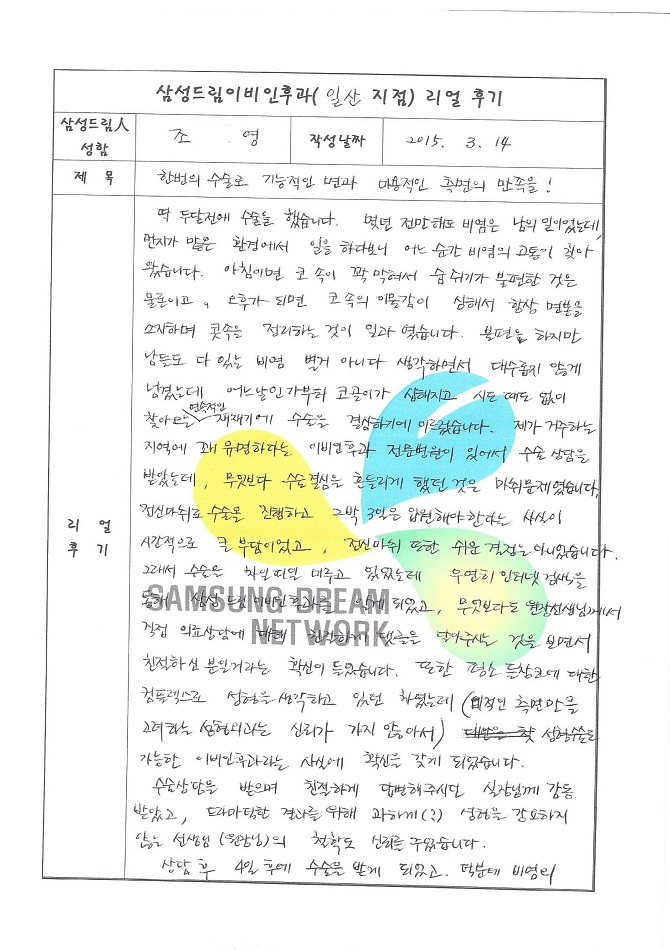 삼성드림이비인후과( 일산 지점) 리얼 후기
삼성드림人 성함
조 영
작성날짜
2015. 3. 14
제 목
한번의 수술로 기능적인 면과 미용적인 측면의 만족을!
리 얼 후 기
딱 두달전에 수술을 했습니다. 몇년 전만해도 비염은 남의 일이었는데,
먼지가 많은 환경에서 일을 하다보니 어느 순간 비염의 고통이 찾아
왔습니다. 아침이면 코 속이 꽉 막혀서 숨쉬기가 불편한 것은
물론이고, 오후가 되면 코 속의 이물감이 심해서 항상 면봉을
소지하며 콧속을 정리하는 것이 일과 였습니다. 불편을 하지만
남들도 다 있는 비염 별거 아니다 생각하면서 대수롭지 않게
넘겼는데 어느날인가부터 코골이가 심해지고 시도 때도 없이
찾아오는 연속적인 재채기에 수술을 결심하기에 이르렀습니다. 제가 거주하는
지역에 꽤 유명하다는 이비인후과 전문병원이 있어서 수술 상담을
받았는데, 무엇보다 수술결심을 흔들리게 했던 것은 마취문제였습니다.
전신마취로 수술을 진행하고 2박 3일은 입원해야한다는 사실이
시간적으로 큰 부담이었고, 전신마취 또한 쉬운 결정은 아니었습니다.
그래서 수술은 차일피일 미루고 있었는데 우연히 인터넷 검색을
통해 삼성드림이비인후과를 알게 되었고, 무엇보다도 원장선생님께서
직접 의료상담에 대해 친절하게 댓글을 달아주시는 것을 보면서
친절하신 분일거라는 확신이 들었습니다. 또한 평소 들창코에 대한
컴플렉스로 성형을 생각하고 있던 차였는데 (미적인 측면만을
고려하는 성형외과는 신뢰가 가지 않아서) 성형수술도
가능한 이비인후과라는 사실에 확신을 갖게 되었습니다.
수술상담을 받으며 친절하게 답변해주시던 실장님께 감동
받았고, 드라마틱한 결과를 위해 과하게(?) 성형을 강요하지
않는 선생님 (원장님)의 철학도 신뢰를 주었습니다.
상담 후 4일 후에 수술을 받게 되었고. 덕분에 비염의
SAMSUNG DREAM
NETWORK